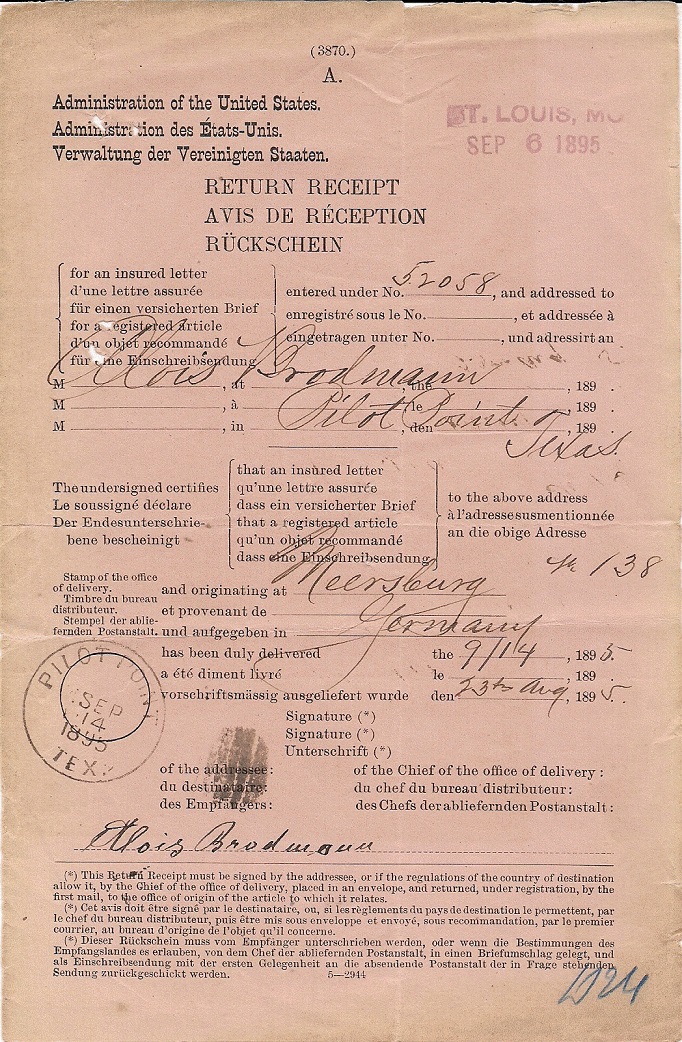 (3870.)
A.
Administration of the United States.
Administration des États-Unis.
Verwaltung der Vereinigten Staaten.
ST. LOUIS, MO
SEP 6 1895
RETURN RECEIPT
AVIS DE RÉCEPTION
RÜCKSCHEIN
for an insured letter
d'une lettre assurée
für einen versicherten Brief
for a registered article
d'un objet recommandé
für eine Einschreibsendung
entered under No. 52058, and addressed to
enregistré sous le No. , et adressée à
eingetragen unter No. , und adressirt an
Alois Brodmann
M , at , the , 189 .
M , à , le , 189 .
Pilot Point
M , in , den , 189 .
Texas.
The undersigned certifies
Le soussigné déclare
Der Endesunterschrie-
bene bescheinigt
that an insured letter
qu'une lettre assurée
dass ein versicherter Brief
that a registered article
qu'un objet recommandé
dass eine Einschreibsendung
to the above address
à l'adresse susmentionnée
an die obige Adresse
138
Stamp of the office
of delivery.
Timbre du bureau
distributeur.
Stempel der ablie-
fernden Postanstalt.
and originating at Meersburg
et provenant de
und aufgegeben in Germany
has been duly delivered the 9/14 , 1895.
a été dûment livré le , 189 .
vorschriftsmässig ausgeliefert wurde den 23rd Aug, 1895.
PILOT POINT
SEP
14
1895
TEX.
Signature (*)
Signature (*)
Unterschrift (*)
of the addressee: of the Chief of the office of delivery :
du destinataire: du chef du bureau distributeur :
des Empfängers: des Chefs der abliefernden Postanstalt :
Alois Brodmann
(*) This Return Receipt must be signed by the addressee, or if the regulations of the country of destination
allow it, by the Chief of the office of delivery, placed in an envelope, and returned, under registration, by the
first mail, to the office of origin of the article to which it relates.
(*) Cet avis doit être signé par le destinataire, ou, si les règlements du pays de destination le permettent, par
le chef du bureau distributeur, puis être mis sous enveloppe et envoyé, sous recommandation, par le premier
courrier, au bureau d'origine de l'objet qu'il concerne.
(*) Dieser Rückschein muss vom Empfänger unterschrieben werden, oder wenn die Bestimmungen des
Empfangslandes es erlauben, von dem Chef der abliefernden Postanstalt, in einen Briefumschlag gelegt, und
als Einschreibsendung mit der ersten Gelegenheit an die absendende Postanstalt der in Frage stehenden
Sendung zurückgeschickt werden. 5—2944